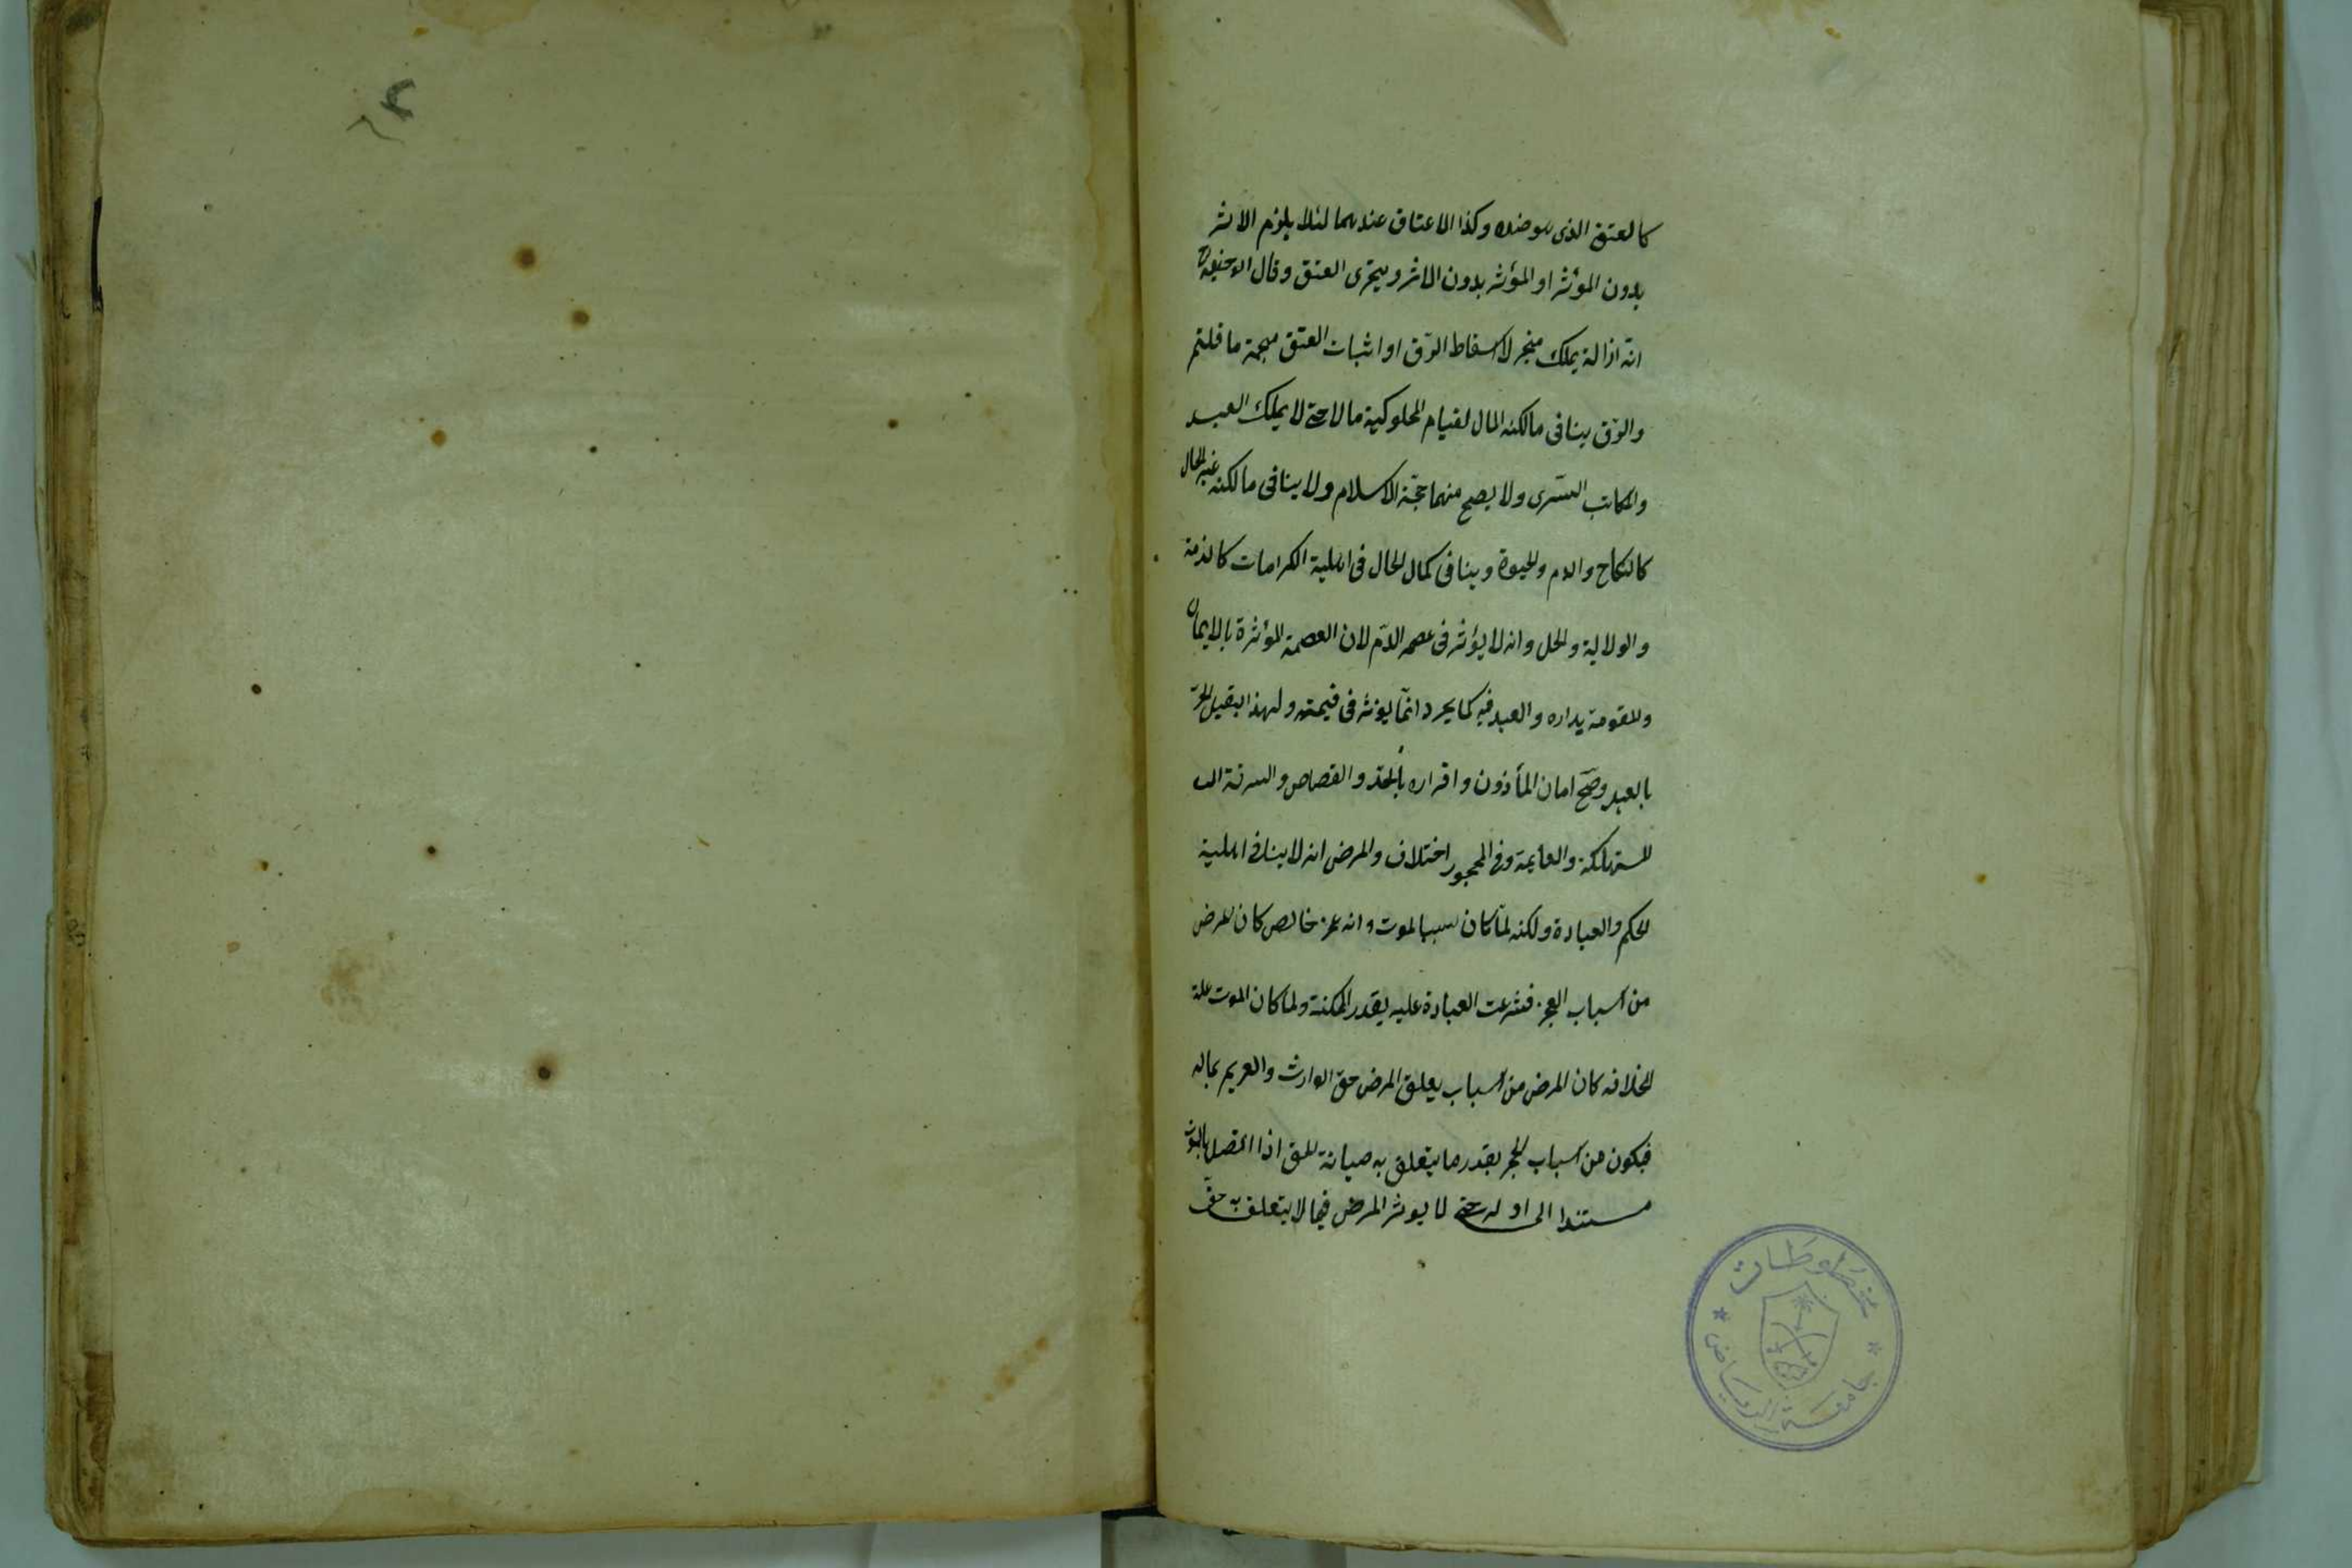 كالعتق الذى هو ضده وكذا الاعتاق عندهما لئلا يلزم الاثر
بدون المؤثر او المؤثر بدون الاثر ويتجزى العتق وقال ابو حنيفة
انه ازالة يملك متجز لا اسقاط الرق او اثبات العتق ما قلتم
والرق ينافى مالكية المال لقيام المملوكية مالا حتى لا يملك العبد
والمكاتب التسرى ولا يصح منهما حجة الاسلام ولا ينافى مالكية غير المال
كالنكاح والدم والحيوة وينافى كمال الحال فى اهلية الكرامات كالذمة
والولاية والحل وانه لا يؤثر فى عصمة الدم لان العصمة المؤثرة بالايمان
والمقومة بداره والعبد فيه كالحر انما يؤثر فى قيمته ولهذا يقتل الحر
بالعبد وصح امان المأذون واقراره بالحد والقصاص والسرقة
المستهلكة والقايمة وفى المحجور اختلاف والمرض انه لا ينافى اهلية
الحكم والعبادة ولكنه لما كان سببا لموت وانه عجز خالص كان المرض
من اسباب العجز فشرعت العبادة عليه بقدر المكنة ولما كان الموت علة
الخلافه كان المرض من اسباب تعلق المرض حق الوارث والغريم بماله
فيكون من اسباب الحجر بقدر ما يتعلق به صيانة للحق اذا اتصل بالموت
مستندا الى اوله حتى لا يؤثر المرض فيما لا يتعلق به حق
مخطوطات
جامعة الرياض